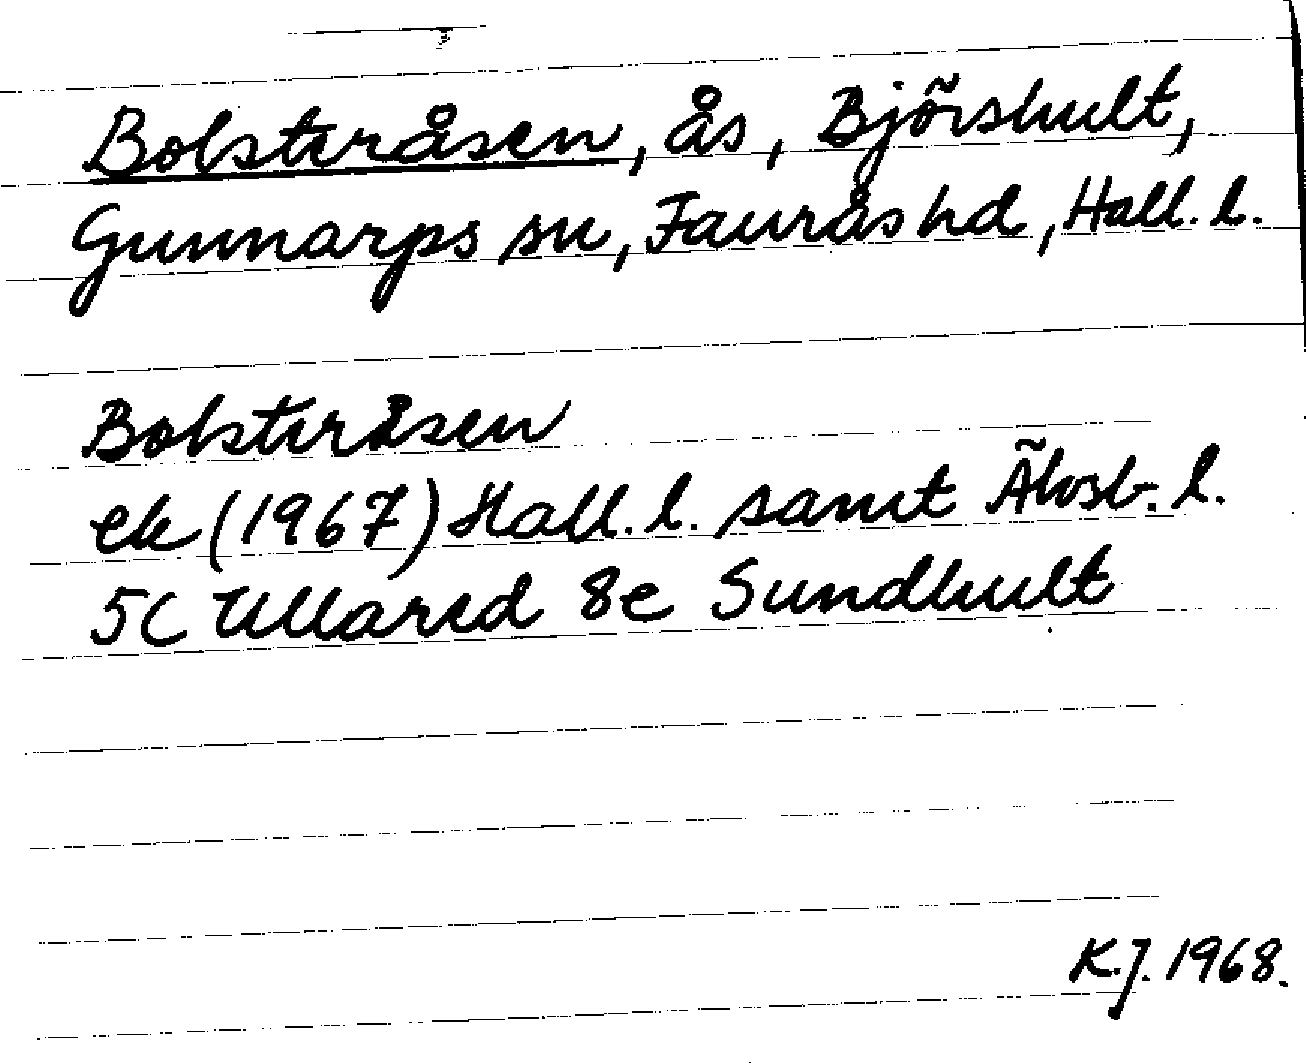 Bolsteråsen, ås, Björshult,
Gunnarps sn, Faurås hd, Hall. l.
Bolsteråsen
ek (1967) Hall. l. samt Älvsb. l.
5C Ullared 8e Sundhult
K.J. 1968.